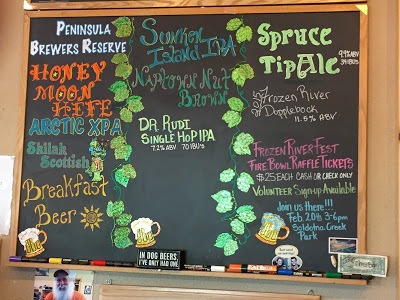 Peninsula
Brewers Reserve
Honey
Moon
Hefe
Arctic XPA
Skilak
Scottish
Breakfast
Beer
Sunken
Island IPA
Naptown Nut
Brown
Dr. Rudi
Single Hop IPA
7.2% ABV 70 IBU's
Spruce
Tip Ale
Frozen River
Dopplebock
11.5% ABV
Frozen River Fest
Fire Bowl Raffle Tickets
$25 each cash or check only
Volunteer Sign-up Available
Join us there!!!
Feb. 20th 3-6pm
Soldotna Creek
Park
IN DOG BEERS,
I'VE ONLY HAD ONE